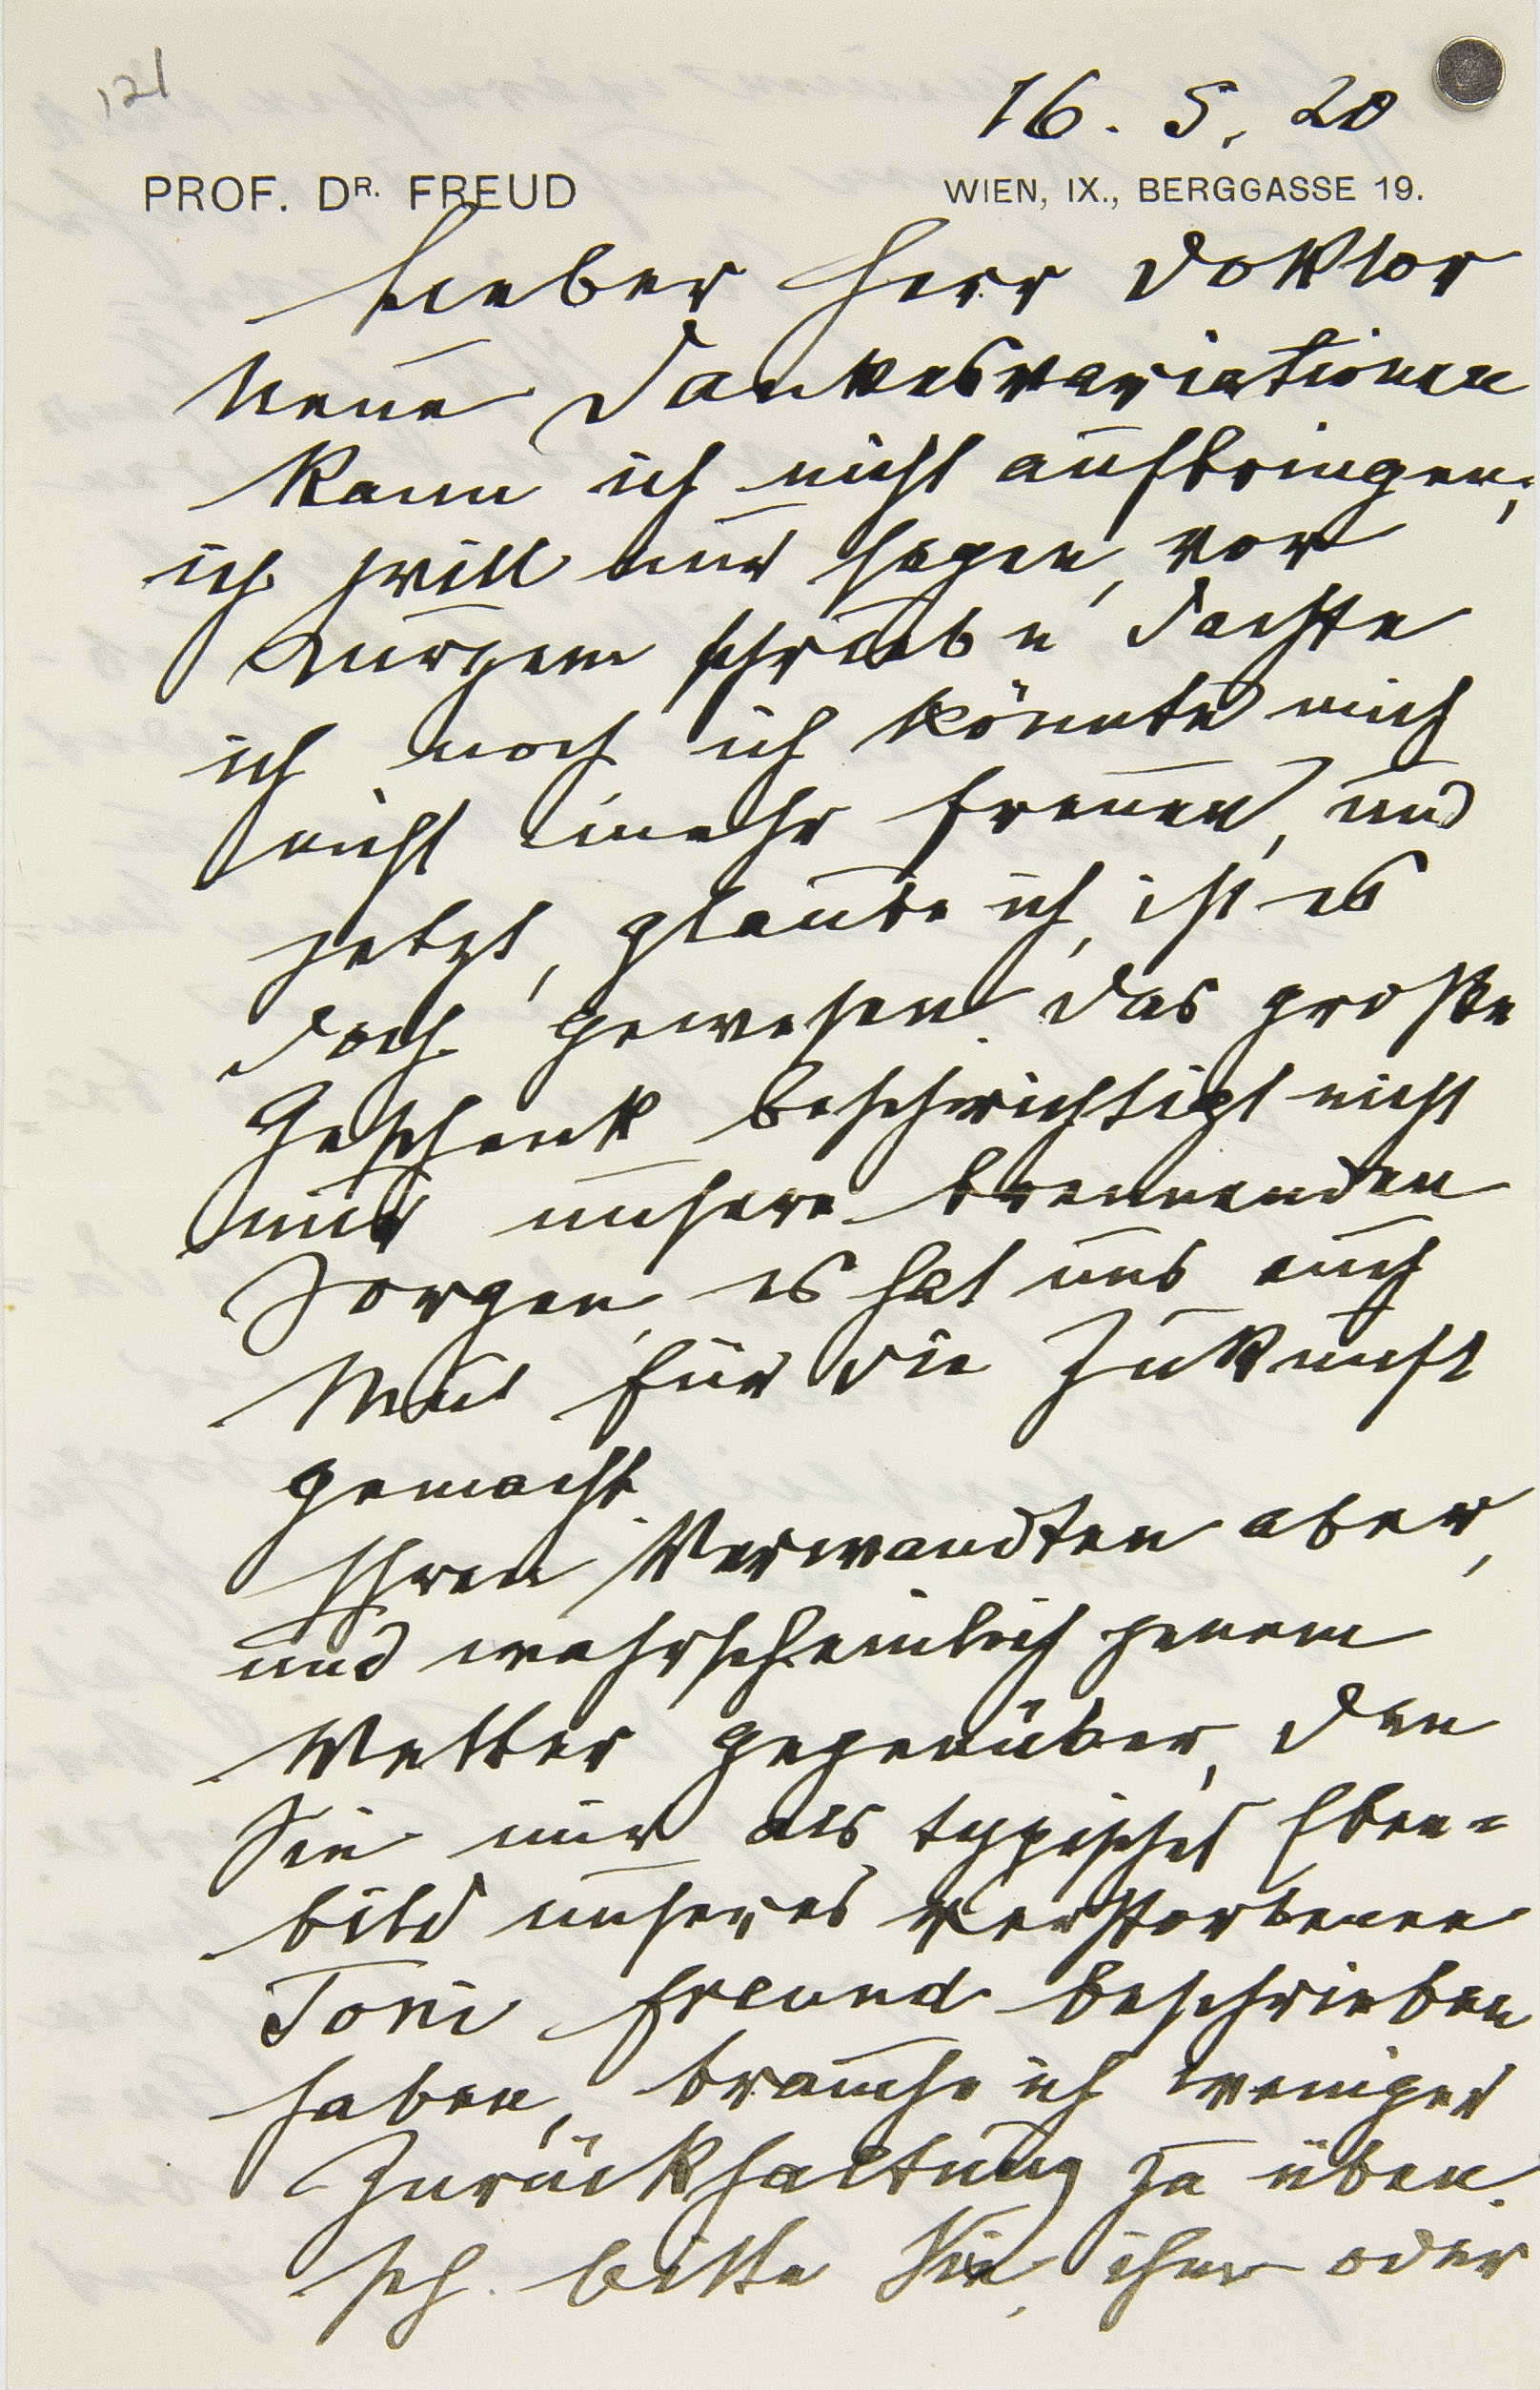 121
16. 5. 20
PROF. DR. FREUD
WIEN, IX., BERGGASSE 19.
Lieber Herr Doktor
Neue Dankesvariationen
kann ich nicht aufbringen,
ich will nur sagen, vor
Kurzem schriebe dachte
ich noch ich könnte mich
nicht mehr freuen, und
jetzt, glaube ich, ist es
doch gewesen. das große
Geschenk beschwichtigt nicht
nur unsere brennenden
Sorgen, es hat uns auch
Mut für die Zukunft
gemacht.
Ihren Verwandten aber,
und wahrscheinlich jenem
Vetter gegenüber, den
Sie mir als typisches Eben=
bild unseres verstorbenen
Toni Freund beschrieben
haben, brauche ich weniger
Zurückhaltung zu üben.
Ich bitte Sie, ihm oder